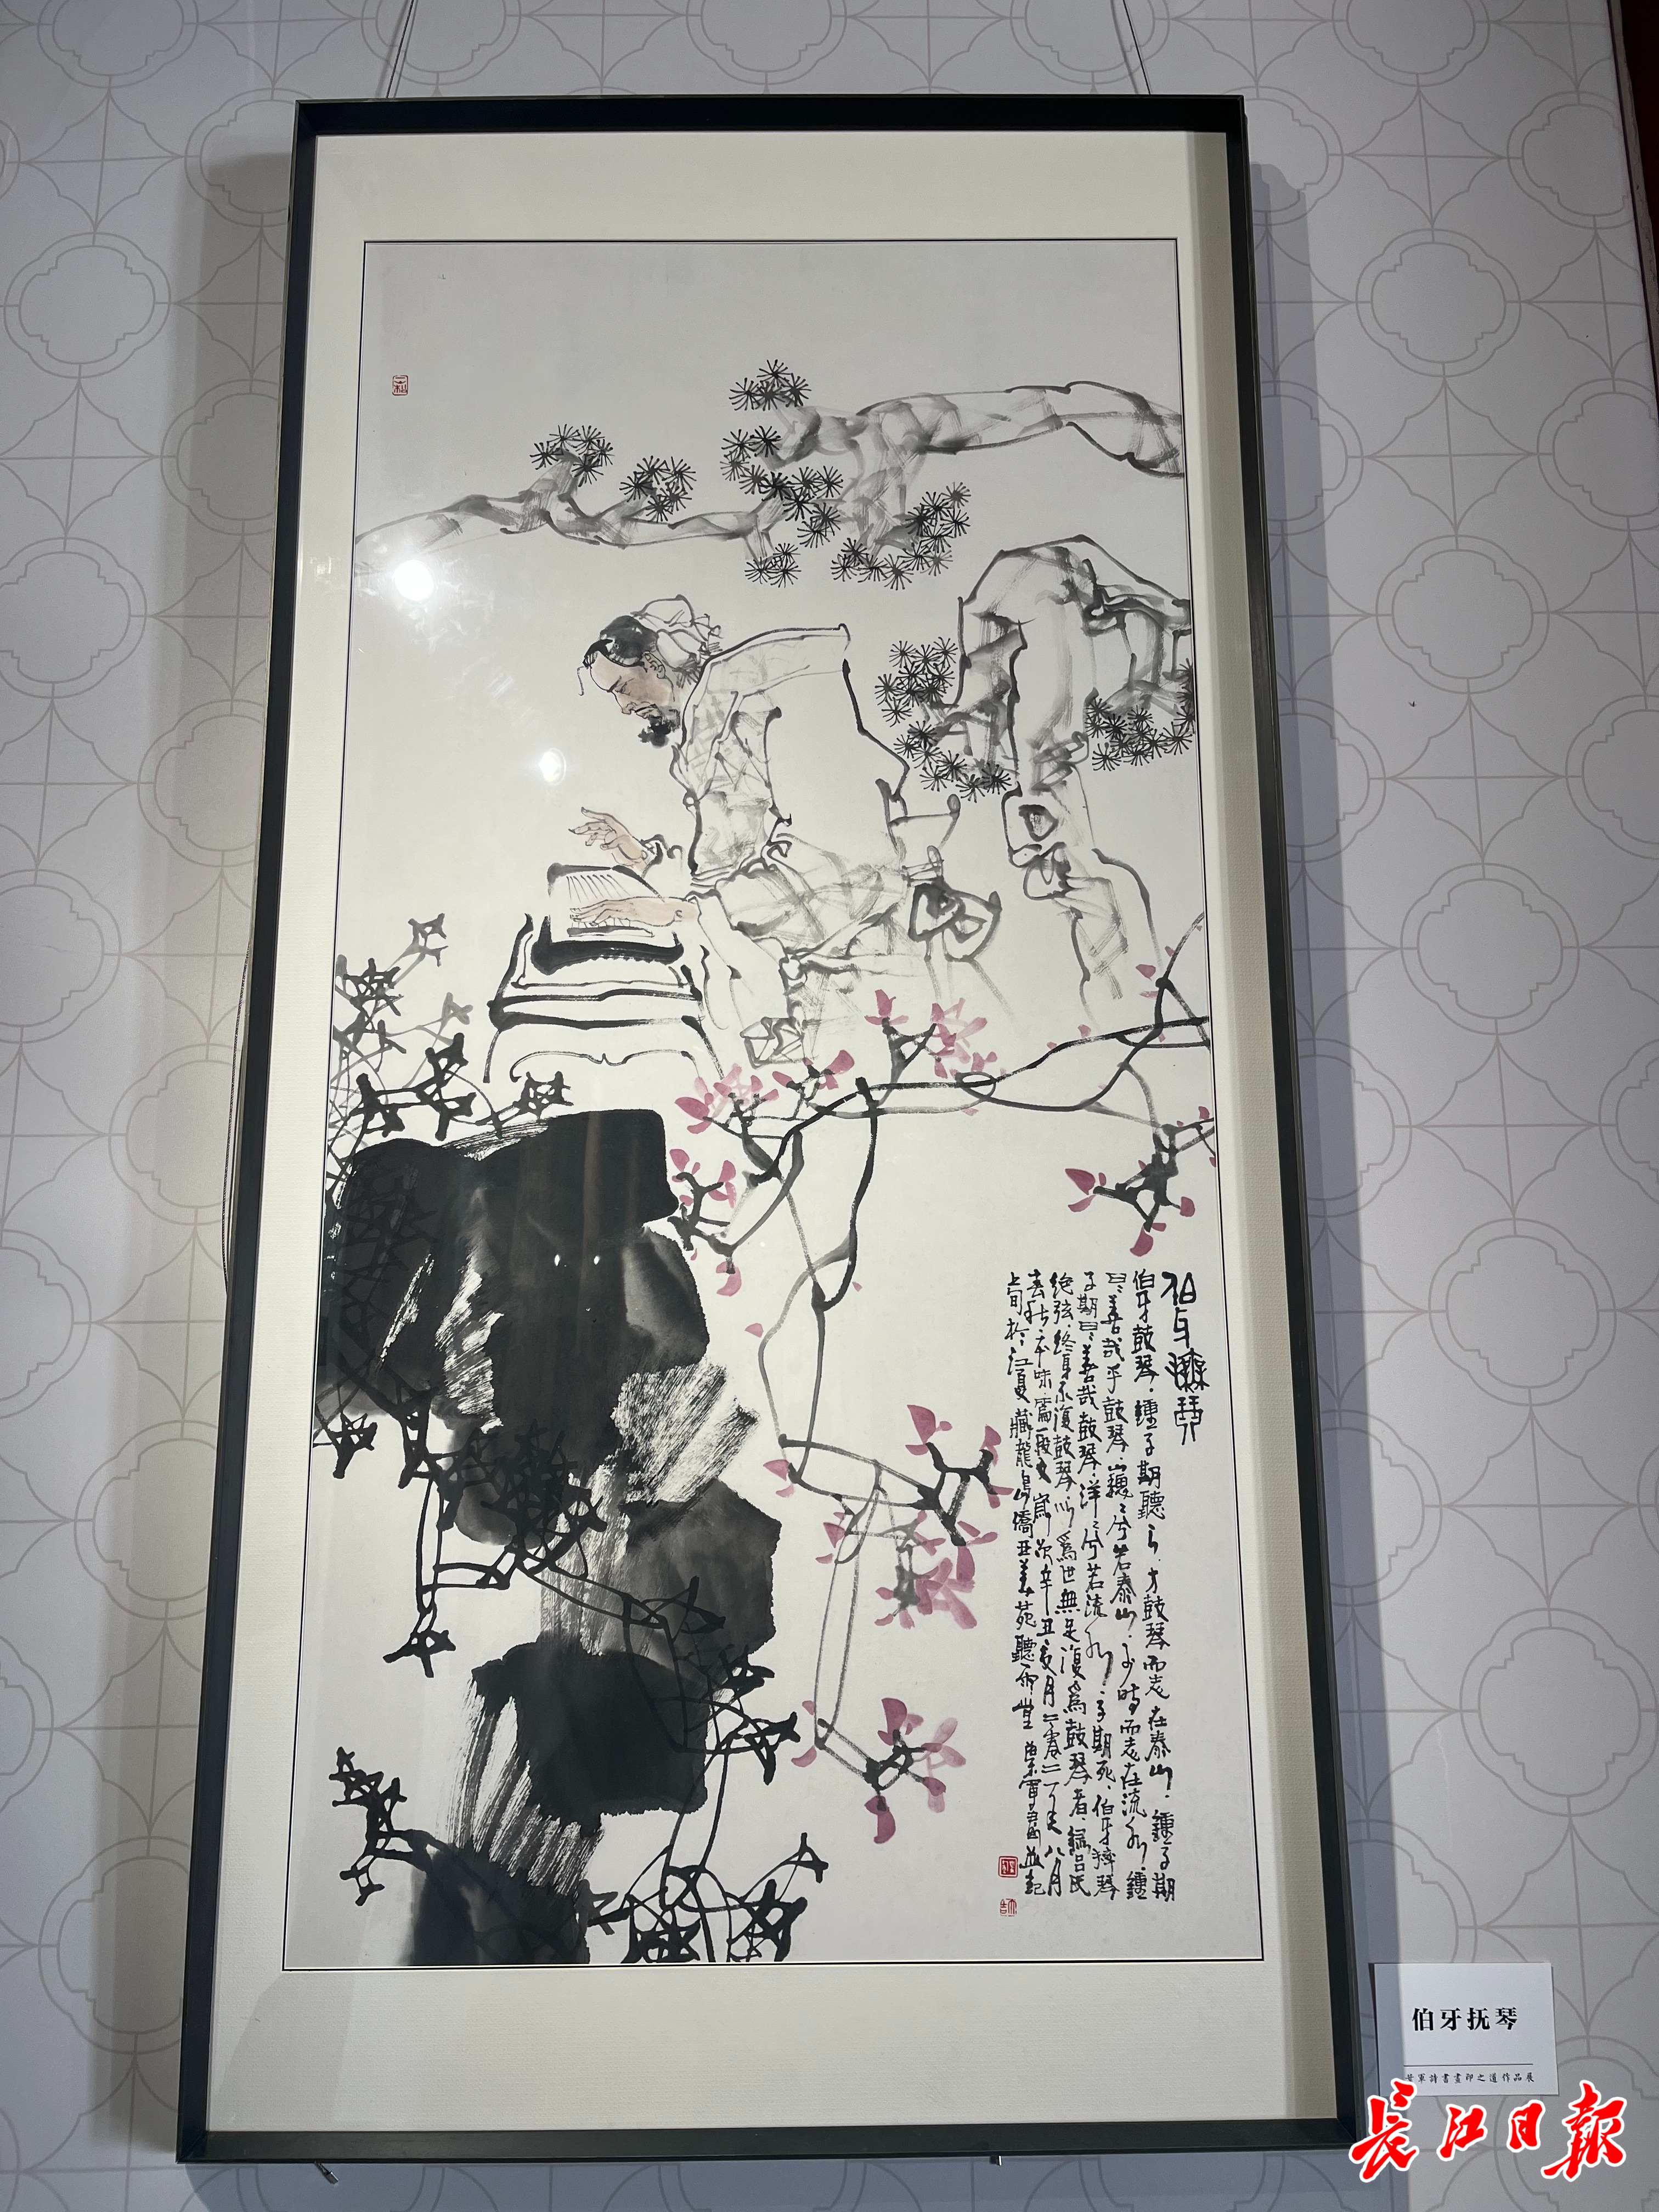 伯牙撫琴
伯牙鼓琴.鍾子期聽之.方鼓琴而志在泰山.鍾子期
曰:善哉乎鼓琴.巍〻兮若泰山.少時而志在流水.鍾
子期曰:善哉鼓琴.洋〻兮若流水.子期死.伯牙摔琴
絕弦.終身不復鼓琴.以爲世無足復爲鼓琴者.錄吕氏
春秋·本味篇一段文 辛丑夏月二零二一年八月
上旬於江夏藏龍島 僑亞美苑聽雨堂 軍畫並記
伯牙抚琴
軍詩書畫印之道作品展
長江日報